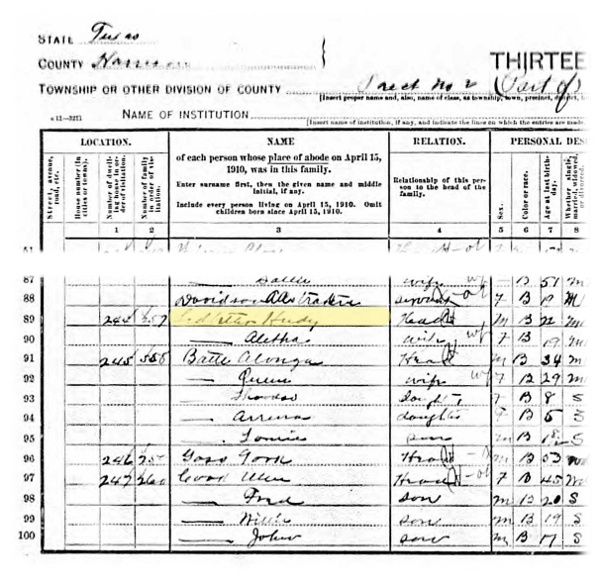 STATE Texas
COUNTY Harrison
THIRTEE
TOWNSHIP OR OTHER DIVISION OF COUNTY Prect No 2 (Part of)
[Insert proper name and, also, name of class, as township, town, precinct, district,
NAME OF INSTITUTION
[Insert name of institution, if any, and indicate the lines on which the entries are made.
LOCATION. NAME RELATION. PERSONAL DES
of each person whose place of abode on April 15, 1910, was in this family.
Enter surname first, then the given name and middle initial, if any.
Include every person living on April 15, 1910. Omit children born since April 15, 1910.
Street, avenue, road, etc.
House number (in cities or towns).
Number of dwelling house in order of visitation.
Number of family in order of visitation.
Relationship of this person to the head of the family.
Sex.
Color or race.
Age at last birthday.
Whether single, married, widowed, or divorced.
1 2 3 4 5 6 7 8
87 Sallie wife B 51 M
88 Davidson servant F B 19 M
89 Ledbetter Hudy Head M B 22 M
90 Aletha wife F B 19 M
91 245 258 Battle Alonza Head M B 34 M
92 Queen wife F B 29 M
93 daughter F B 8 S
94 daughter F B 5 S
95 son M B S
96 246 Head M B 53
97 247 260 Good Ellen Head F B 45
98 Ford son M B 20 S
99 Willie son M B 19 S
100 John son M B 17 S